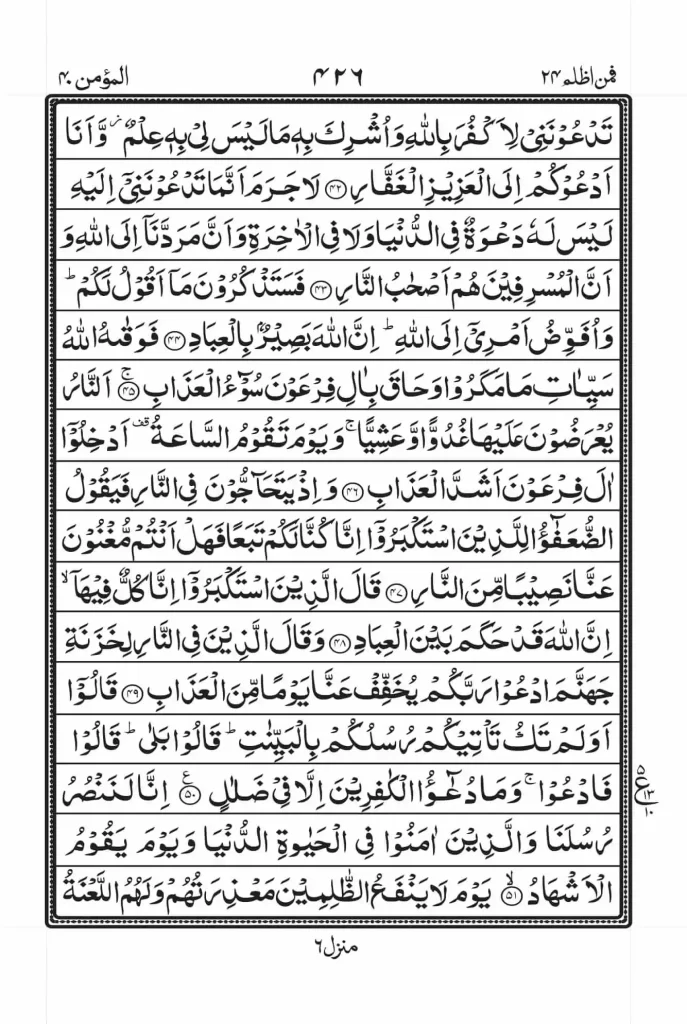 فمن اظلم ٢٤
٤٢٦
المؤمن ٤٠
تَدْعُوْنَنِیْ لِاَكْفُرَ بِاللّٰهِ وَاُشْرِكَ بِهٖ مَا لَیْسَ لِیْ بِهٖ عِلْمٌ ؗ وَّاَنَا
اَدْعُوْكُمْ اِلَی الْعَزِیْزِ الْغَفَّارِ ﴿۴۲﴾ لَا جَرَمَ اَنَّمَا تَدْعُوْنَنِیْۤ اِلَیْهِ
لَیْسَ لَهٗ دَعْوَةٌ فِی الدُّنْیَا وَلَا فِی الْاٰخِرَةِ وَاَنَّ مَرَدَّنَاۤ اِلَی اللّٰهِ وَ
اَنَّ الْمُسْرِفِیْنَ هُمْ اَصْحٰبُ النَّارِ ﴿۴۳﴾ فَسَتَذْكُرُوْنَ مَاۤ اَقُوْلُ لَكُمْ ؕ
وَاُفَوِّضُ اَمْرِیْۤ اِلَی اللّٰهِ ؕ اِنَّ اللّٰهَ بَصِیْرٌۢ بِالْعِبَادِ ﴿۴۴﴾ فَوَقٰىهُ اللّٰهُ
سَیِّاٰتِ مَا مَكَرُوْا وَحَاقَ بِاٰلِ فِرْعَوْنَ سُوْٓءُ الْعَذَابِ ﴿۴۵﴾ۚ اَلنَّارُ
یُعْرَضُوْنَ عَلَیْهَا غُدُوًّا وَّعَشِیًّا ۚ وَیَوْمَ تَقُوْمُ السَّاعَةُ ۫ اَدْخِلُوْۤا
اٰلَ فِرْعَوْنَ اَشَدَّ الْعَذَابِ ﴿۴۶﴾ وَاِذْ یَتَحَآجُّوْنَ فِی النَّارِ فَیَقُوْلُ
الضُّعَفٰٓؤُا لِلَّذِیْنَ اسْتَكْبَرُوْۤا اِنَّا كُنَّا لَكُمْ تَبَعًا فَهَلْ اَنْتُمْ مُّغْنُوْنَ
عَنَّا نَصِیْبًا مِّنَ النَّارِ ﴿۴۷﴾ قَالَ الَّذِیْنَ اسْتَكْبَرُوْۤا اِنَّا كُلٌّ فِیْهَاۤ ۙ
اِنَّ اللّٰهَ قَدْ حَكَمَ بَیْنَ الْعِبَادِ ﴿۴۸﴾ وَقَالَ الَّذِیْنَ فِی النَّارِ لِخَزَنَةِ
جَهَنَّمَ ادْعُوْا رَبَّكُمْ یُخَفِّفْ عَنَّا یَوْمًا مِّنَ الْعَذَابِ ﴿۴۹﴾ قَالُوْۤا
اَوَلَمْ تَكُ تَاْتِیْكُمْ رُسُلُكُمْ بِالْبَیِّنٰتِ ؕ قَالُوْا بَلٰی ؕ قَالُوْا
فَادْعُوْا ۚ وَمَا دُعٰٓؤُا الْكٰفِرِیْنَ اِلَّا فِیْ ضَلٰلٍ ﴿۵۰﴾ع اِنَّا لَنَنْصُرُ
رُسُلَنَا وَالَّذِیْنَ اٰمَنُوْا فِی الْحَیٰوةِ الدُّنْیَا وَیَوْمَ یَقُوْمُ
الْاَشْهَادُ ﴿۵۱﴾ۙ یَوْمَ لَا یَنْفَعُ الظّٰلِمِیْنَ مَعْذِرَتُهُمْ وَلَهُمُ اللَّعْنَةُ
منزل ٦